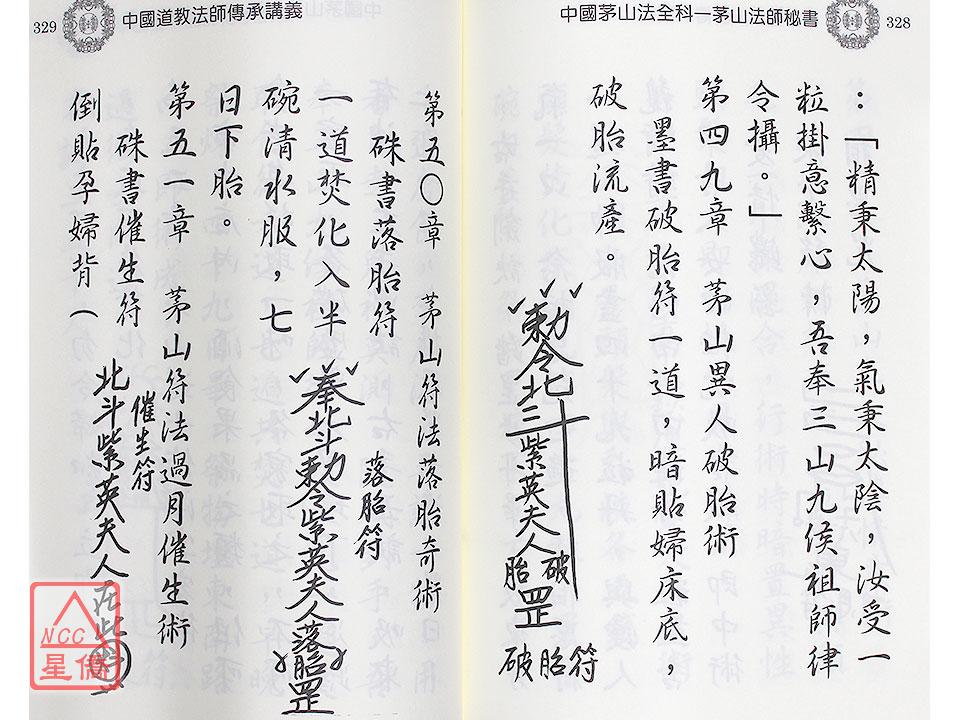 中國茅山法全科－茅山法師秘書
328
：「精秉太陽，氣秉太陰，汝受一
粒掛意繫心，吾奉三山九侯祖師律
令攝。」
第四九章　茅山異人破胎術
墨書破胎符一道，暗貼婦床底，
破胎流產。
勅令北斗紫英夫人
破胎
罡
破胎符
329
中國道教法師傳承講義
第五〇章　茅山符法落胎奇術
硃書落胎符
一道焚化入半
碗清水服，七
日下胎。
落胎符
奉北斗勅令紫英夫人落胎罡
第五一章　茅山符法過月催生術
硃書催生符
倒貼孕婦背（
催生符
北斗紫英夫人在此
NCC
星僑